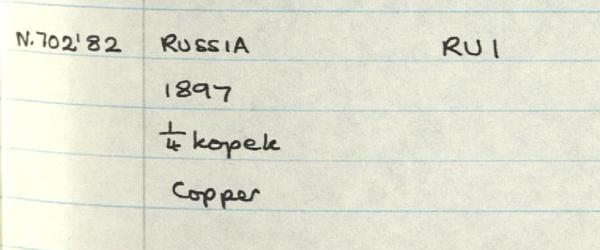 N.702'82 RUSSIA RU 1
1897
1/4 kopek
Copper